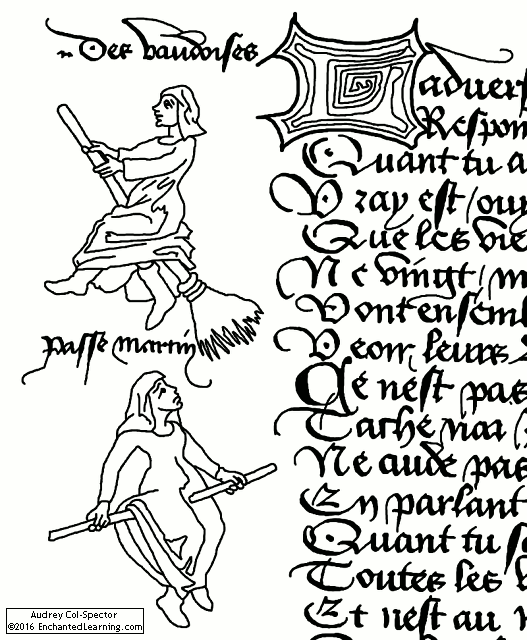 Des vaudoises
passe martin
L advers
Respon
Quant tu a
Vray est / our
Que les vie
Ne vingt / m
Vont ensembl
Veoir leurs
Ce n'est pas
Tache par
Ne aude pas
En parlant
Quant tu
Toutes les v
Et nest au
Audrey Col-Spector
©2016 EnchantedLearning.com